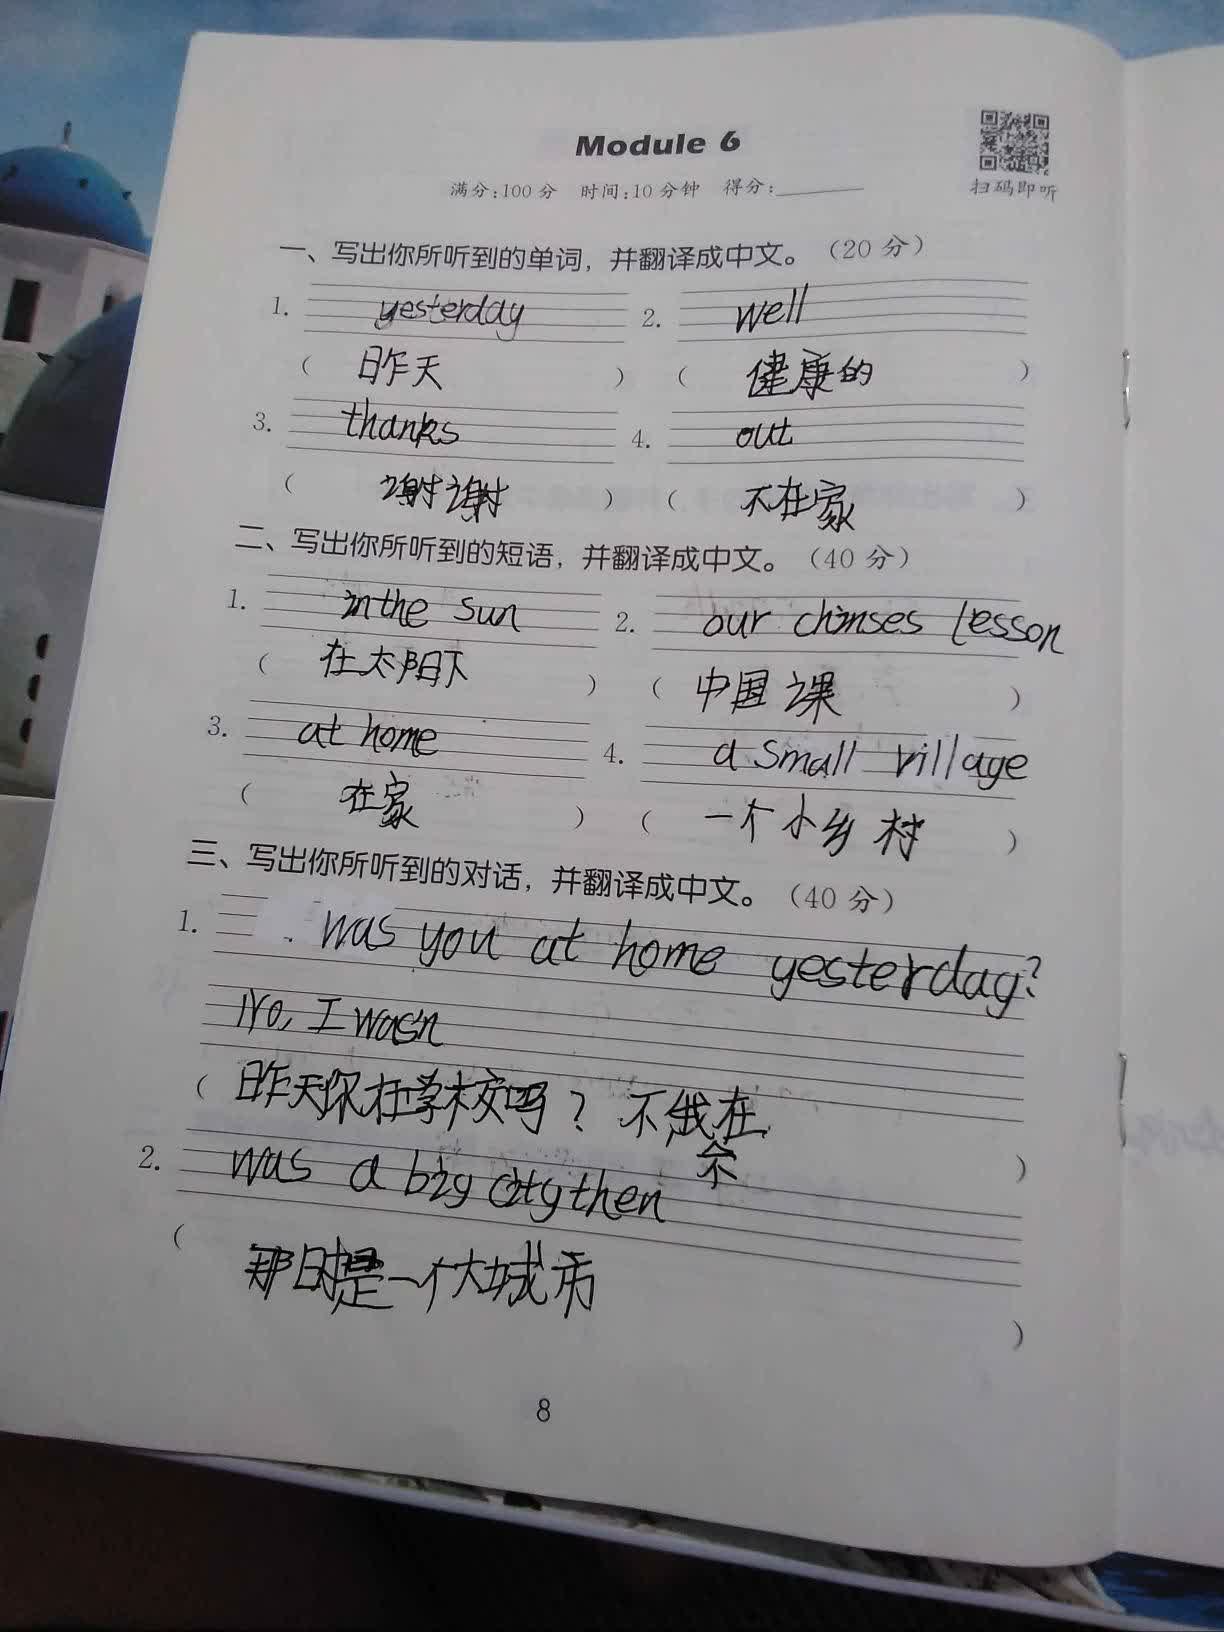 Module 6
扫码即听
满分:100分 时间:10分钟 得分:
一、写出你所听到的单词,并翻译成中文。(20分)
1. yesterday 2. well
( 昨天 ) ( 健康的 )
3. thanks 4. out
( 谢谢 ) ( 不在家 )
二、写出你所听到的短语,并翻译成中文。(40分)
1. in the sun 2. our chinses lesson
( 在太阳下 ) ( 中国课 )
3. at home 4. a small village
( 在家 ) ( 一个小乡村 )
三、写出你所听到的对话,并翻译成中文。(40分)
1. was you at home yesterday?
No, I wasn
( 昨天你在学校吗? 不我在
家 )
2. was a big city then
( 那时是一个大城市
)
8